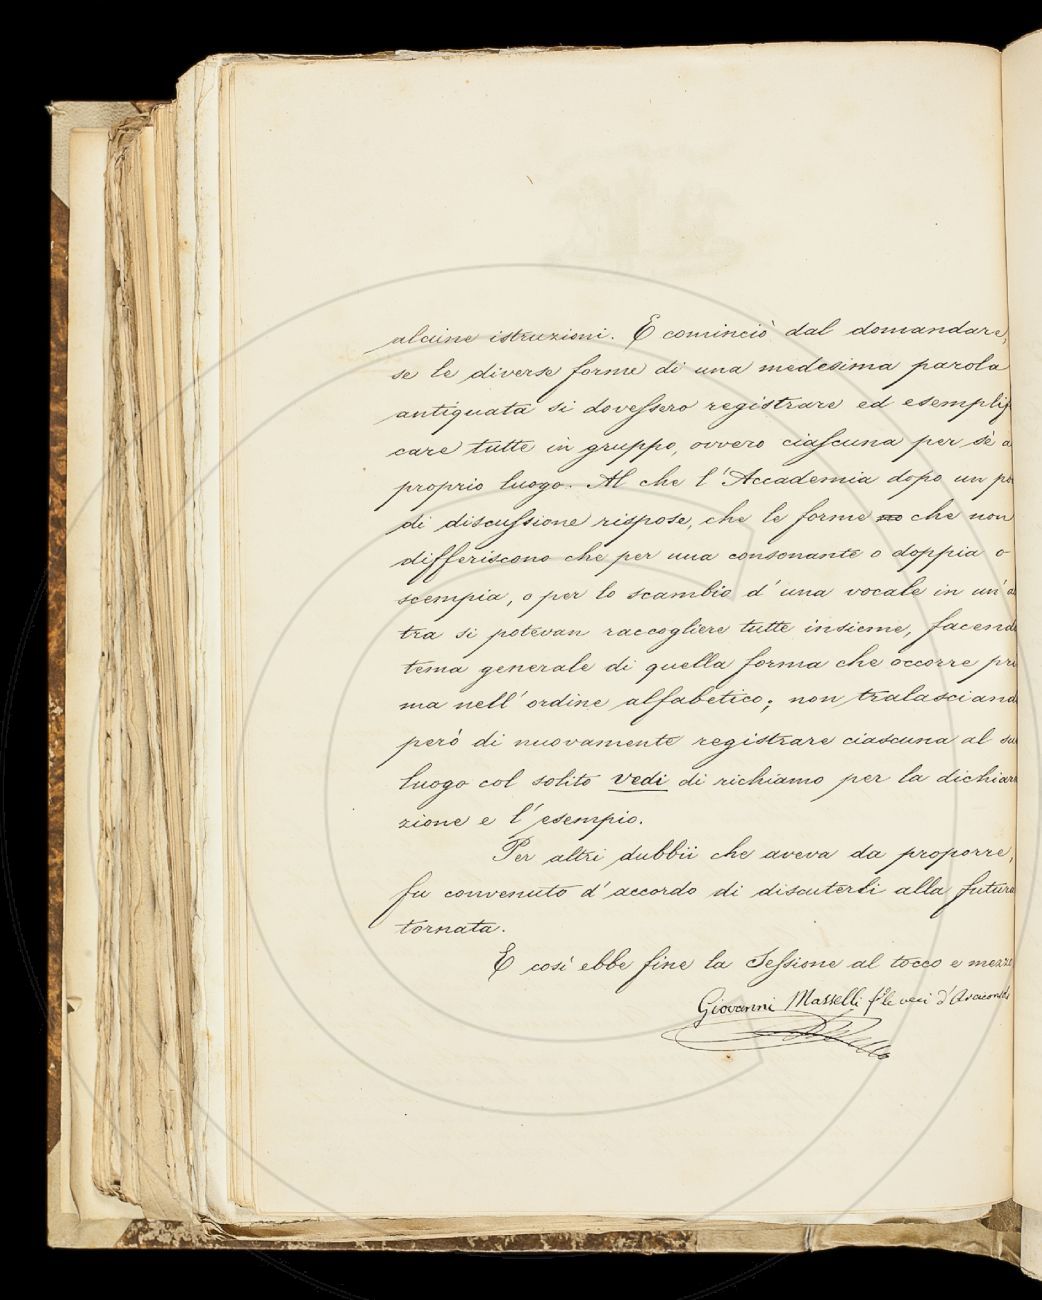 alcune istruzioni. E cominciò dal domandare,
se le diverse forme di una medesima parola
antiquata si dovessero registrare ed esemplif
care tutte in gruppo, ovvero ciascuna per sè a
proprio luogo. Al che l'Accademia dopo un po
di discussione rispose, che le forme che non
differiscono che per una consonante o doppia o
scempia, o per lo scambio d'una vocale in un'a
tra si potevan raccogliere tutte insieme, facend
tema generale di quella forma che occorre pri
ma nell'ordine alfabetico; non tralasciand
però di nuovamente registrare ciascuna al su
luogo col solito vedi di richiamo per la dichiar
zione e l'esempio.
Per altri dubbii che aveva da proporre,
fu convenuto d'accordo di discuterli alla futura
tornata.
E così ebbe fine la Sessione al tocco e mezzo
Giovanni Masselli f. le veci d'